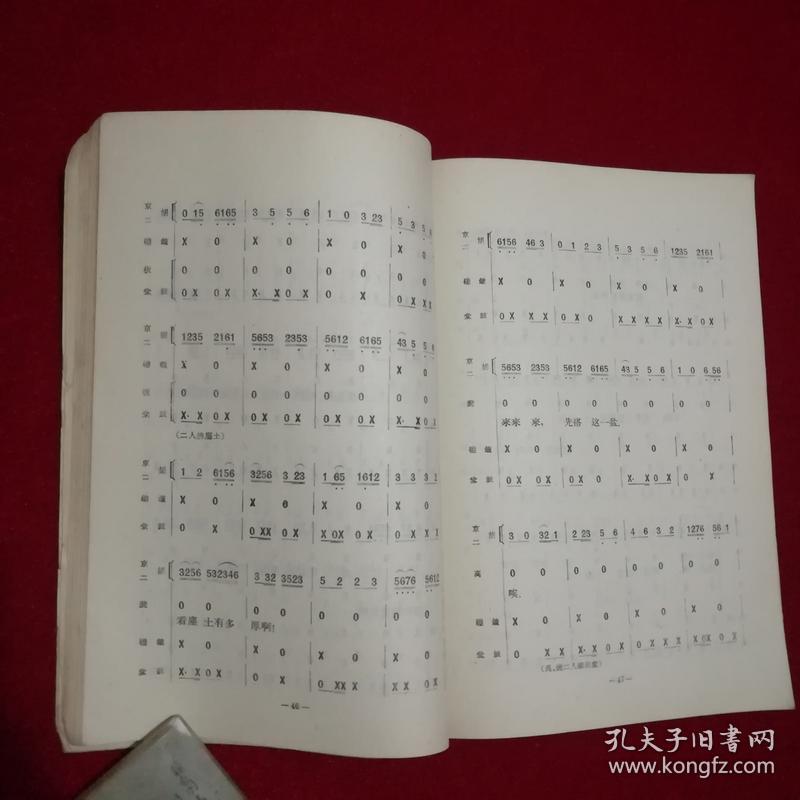 京胡 0 15 6165 3 5 5 6 1 0 3 23 5 3 5 6
二
碰鐘 X 0 X 0 X 0 X 0
板 0 0 0 0 0 0 0 0
堂鼓 0X 0X X· X 0X 0 X 0X 0X
1235 2161 5653 2353 5612 6165 43 5 5 6
二
X 0 X 0 X 0 X 0
0 0 0 0 0 0 0 0
堂鼓 X· X 0X X· X 0X X· X 0X X· X 0X
京胡 1 2 6156 3256 3 23 1 65 1612 3 3 3 2
二
碰鐘 X 0 X 0 X 0 X 0
堂鼓 X 0 0 XX 0X X 0X 0X X 0X 0X
京胡 3256 532346 3 32 3523 5 2 2 3 5676 5612
二
0 0 0 0 0 0 0 0
看 土有多 厚啊!
碰鐘 X 0 X 0 X 0 X 0
堂鼓 X· X 0X 0 X 0 XX 0X X· X 0X
—46—
京胡 6156 46 3 0 1 2 3 5 3 5 6 1235 2161
二
碰鐘 X 0 X 0 X 0 X 0
堂鼓 0X 0X 0X 0 X· X 0X X· X 0X
京胡 5653 2353 5612 6165 43 5 5 6 1 0 6 56
二
0 0 0 0 0 0 0 0
來來 來, 先搭 这一盐.
碰鐘 X 0 X 0 X 0 X 0
堂鼓 0X 0X 0X 0X X· X 0X X· X 0X
京胡 3 0 32 1 2 23 5 6 4 6 3 2 1276 56 1
二
高 0 0 0 0 0 0 0 0
唉.
碰鐘 X 0 X 0 X 0 X 0
堂鼓 0 X
—47—
孔夫子旧書网
www.kongfz.com